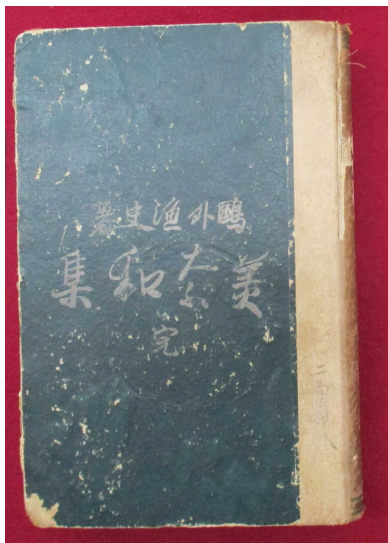 鷗外漁史著
美奈和集
完